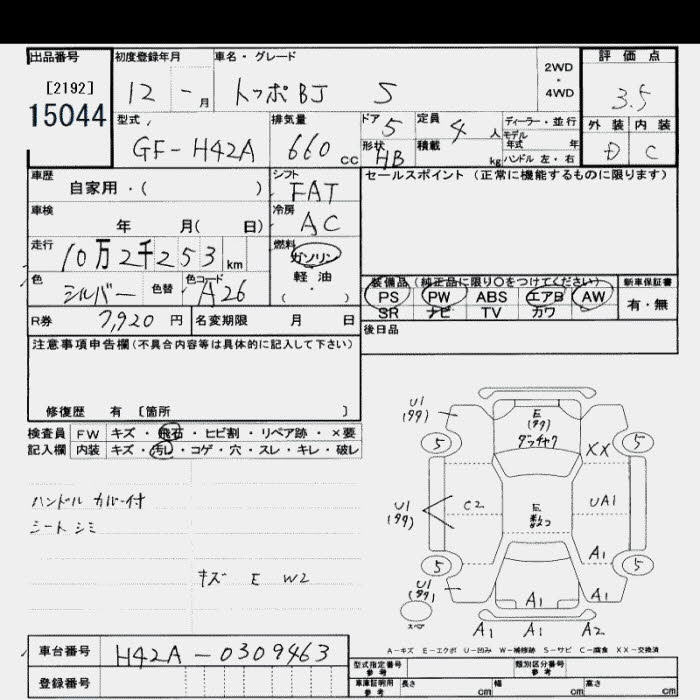 出品番号 初度登録年月 車名・グレード 評価点
[2192] 12 - 月 トッポBJ S 2WD・4WD 3.5
15044
型式 GF-H42A 排気量 660cc ドア 5 定員 4人 ディーラー・並行 外装 内装
形状 HB 積載 kg モデル年式 年 D C
ハンドル 左・右
車歴 自家用・( ) シフト FAT セールスポイント (正常に機能するものに限ります)
車検 年 月( 日) 冷房 AC
走行 10万2千253km 燃料 ガソリン
軽・油
( ・ )
色 シルバー 色替 色コード A26 装備品 (純正品に限り○をつけてください) 新車保証書
PS PW ABS エアB AW 有・無
SR ナビ TV カワ
R券 7,920円 名変期限 月 日 後日品
注意事項申告欄(不具合内容等は具体的に記入して下さい)
修復歴 有 〔箇所 〕
検査員 FW キズ・飛石・ヒビ割・リペア跡・×要
記入欄 内装 キズ・汚レ・コゲ・穴・スレ・キレ・破レ
ハンドル カバー付
シート シミ
キズ E W2
U1
(タタ)
E
(タタ)
ダッチャク
5 XX 5
U1
(タタ)
C2 E UA1
5 A1 5
U1
(タタ)
A1 A1
スペア
A1 A1 A2
A-キズ E-エクボ U-凹み W-補修跡 S-サビ C-腐食 XX-交換済
車台番号 H42A-0309463
登録番号
型式指定番号 参考 類別区分番号 参考
車庫証明用 参考 長さ cm 幅 cm 高さ cm